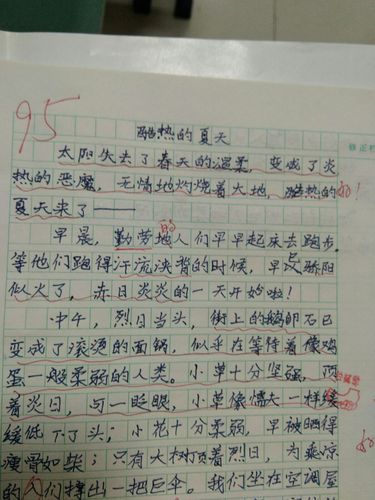 95
酷热的夏天
修正栏
太阳失去了春天的温柔，变成了炎
热的恶魔，无情地灼烧着大地，酷热的
好！
夏天来了——
的
早晨，勤劳地人们早早起来去跑步。
等他们跑得汗流浃背的时候，早已骄阳
似火了，赤日炎炎的一天开始啦！
中午，烈日当头，街上的鹅卵石已
变成了滚烫的面锅，似乎在等待着像鸡
蛋一般柔弱的人类。小草十分坚强，
着炎日，与一眨眼，小草像懦夫一样缓
缓低下了头；小花十分柔弱，早被晒得
瘦骨如柴；只有大树顶着烈日，为乘凉
的人们撑出一把巨伞。我们坐在空调屋